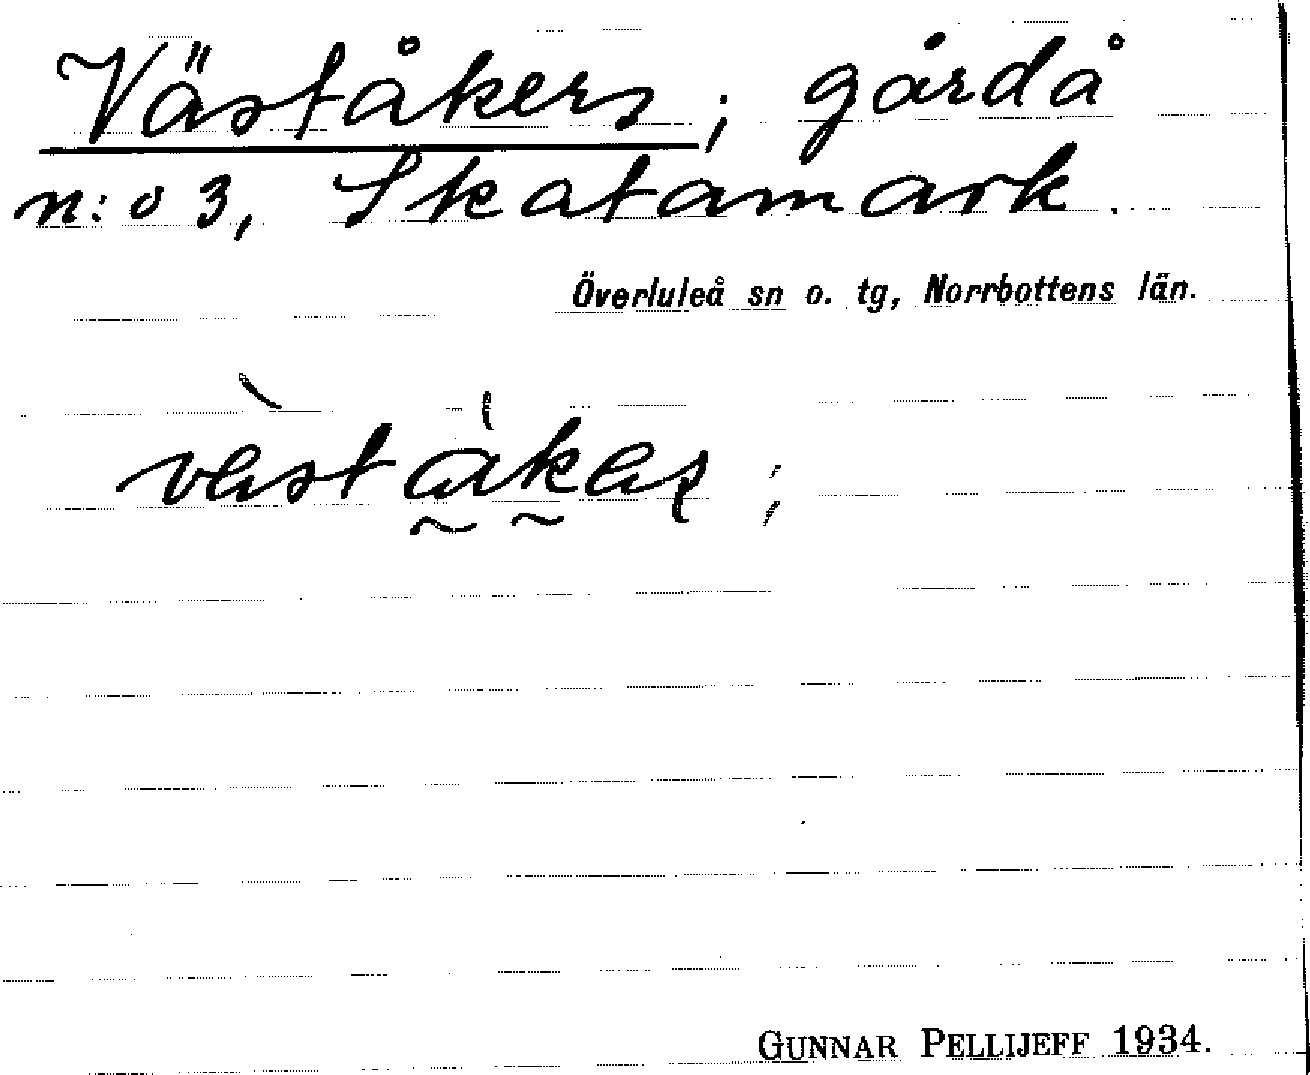 Väståkers; gård å
n:o 3, Skatamark.
Överluleå sn o. tg, Norrbottens län.
GUNNAR PELLIJEFF 1934.